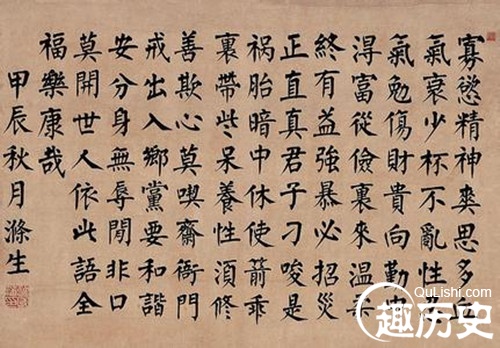 寡慾精神爽思多血
氣衰少杯不亂性
氣勉傷財貴向勤中
淂富從儉裏來温柔
終有益強暴必招災
正直真君子刁唆是
祸胎暗中休使箭乖
裏帶些呆養性湏修
善欺心莫喫齋衙門
戒出入鄉黨要和諧
安分身無辱閒非口
莫開世人依此語全
福樂康哉
甲辰秋月滌生
QuLishi.com
趣历史